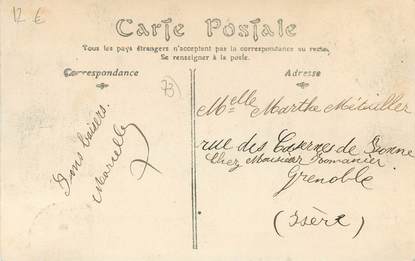 12 €
Carte Postale
Tous les pays étrangers n'acceptent pas la correspondance au recto.
Se renseigner à la poste.
Correspondance
Adresse
73
Bons baisers.
Marcelle
Melle Marthe
rue des Casernes de Bonne
Chez Monsieur Romanier
Grenoble
(Isère)